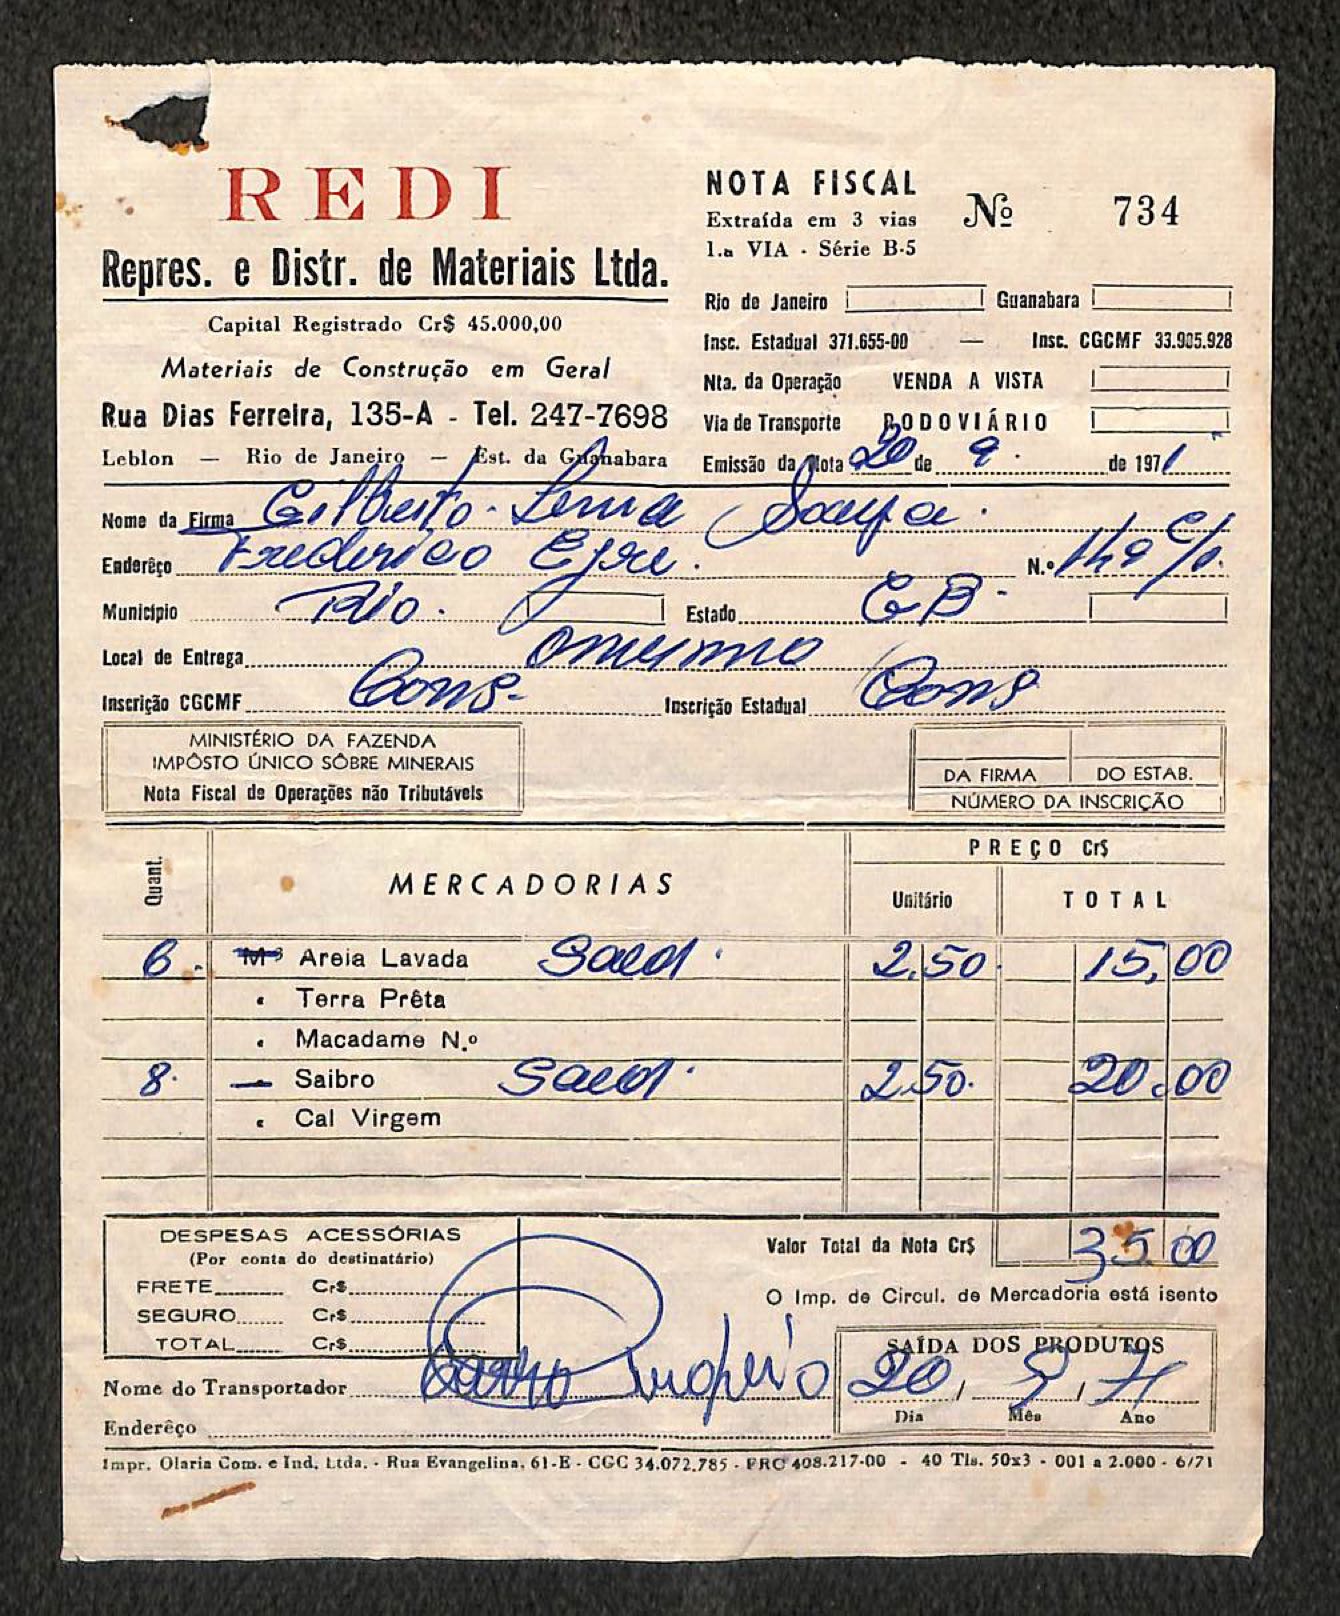 REDI
Repres. e Distr. de Materiais Ltda.
Capital Registrado Cr$ 45.000,00
Materiais de Construção em Geral
Rua Dias Ferreira, 135-A - Tel. 247-7698
Leblon — Rio de Janeiro — Est. da Guanabara
NOTA FISCAL
Extraída em 3 vias
1.a VIA - Série B-5
Nº 734
Rio de Janeiro Guanabara
Insc. Estadual 371.655-00 — Insc. CGCMF 33.905.928
Nta. da Operação VENDA A VISTA
Via de Transporte RODOVIÁRIO
Emissão da Nota 20 de 9. de 1971
Nome da Firma Gilberto
Endereço Frederico N.º
Município Rio. Estado GB-
Local de Entrega omesmo
Inscrição CGCMF Cons- Inscrição Estadual Cons
MINISTÉRIO DA FAZENDA
IMPÔSTO ÚNICO SÔBRE MINERAIS
Nota Fiscal de Operações não Tributáveis
DA FIRMA DO ESTAB.
NÚMERO DA INSCRIÇÃO
Quant. MERCADORIAS PREÇO Cr$
Unitário TOTAL
6. M³ Areia Lavada 2,50 15,00
" Terra Prêta
" Macadame N.º
8. Saibro 2,50. 20,00
" Cal Virgem
DESPESAS ACESSÓRIAS
(Por conta do destinatário)
FRETE Cr$
SEGURO Cr$
TOTAL Cr$
Valor Total da Nota Cr$ 35,00
O Imp. de Circul. de Mercadoria está isento
SAÍDA DOS PRODUTOS
20 / 9 / 71
Dia Mês Ano
Nome do Transportador
Endereço
Impr. Olaria Com. e Ind. Ltda. - Rua Evangelina, 61-E - CGC 34.072.785 - FRC 408.217-00 - 40 Tls. 50x3 - 001 a 2.000 - 6/71